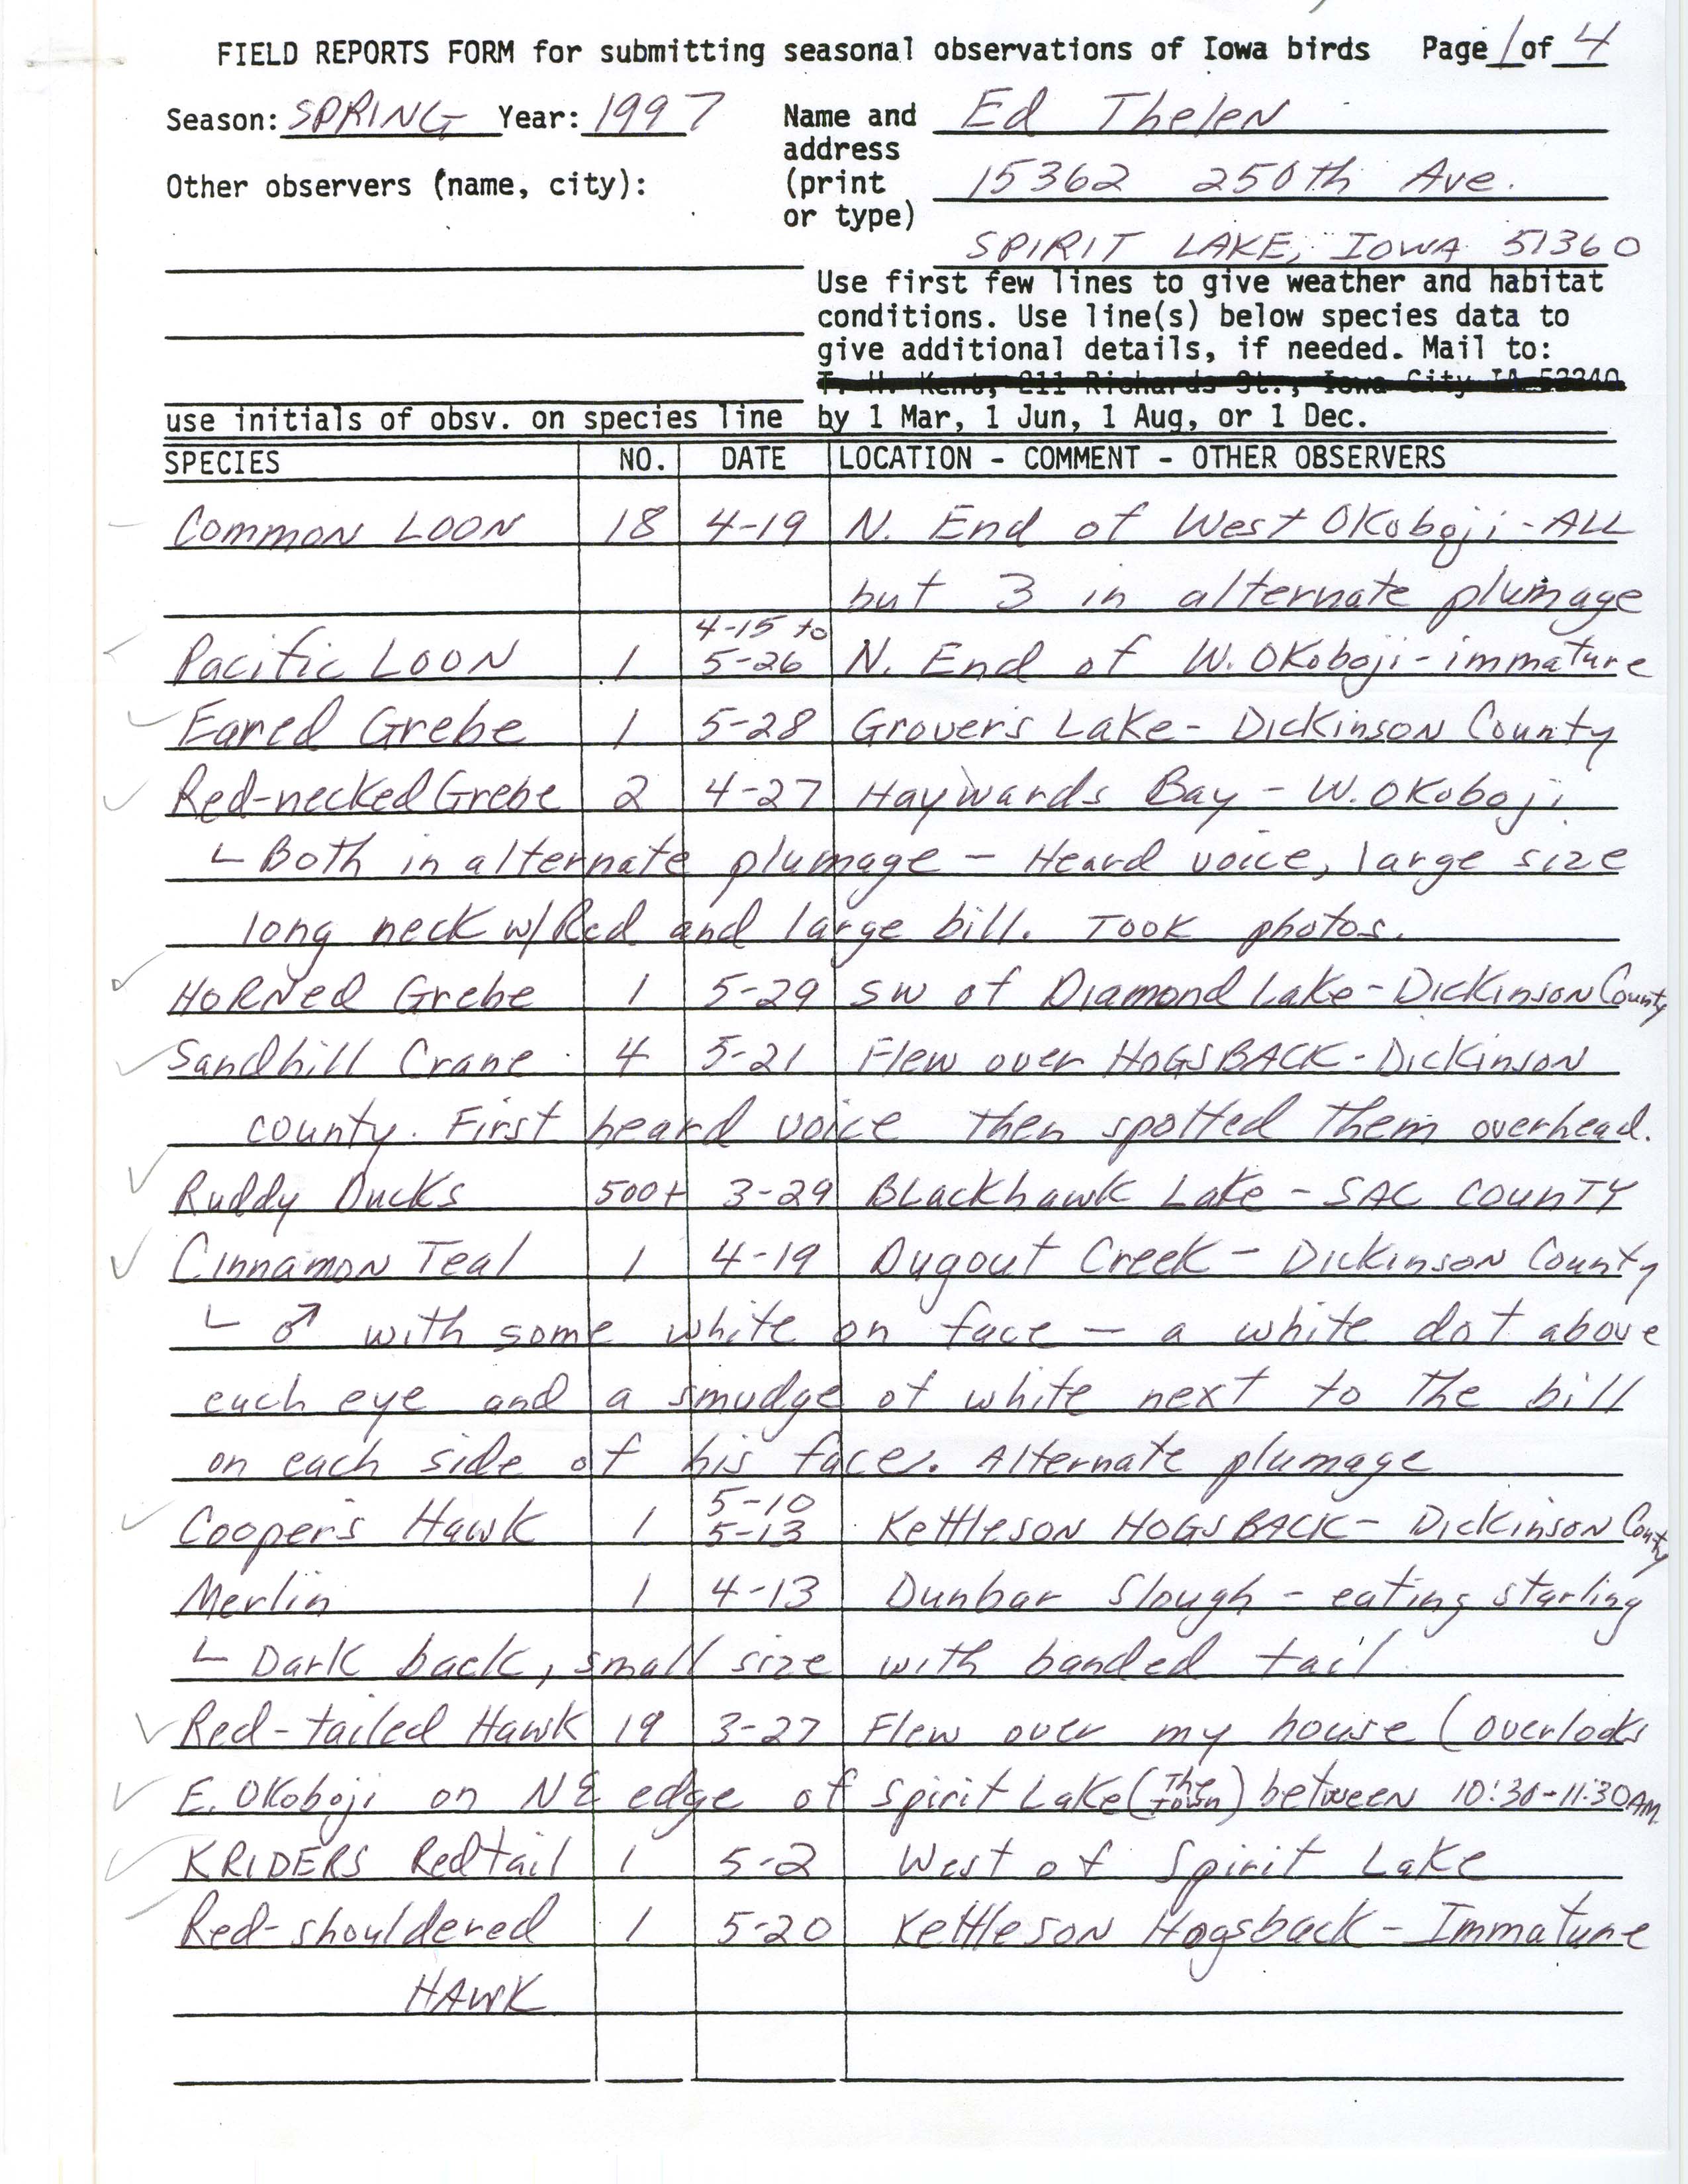 FIELD REPORTS FORM for submitting seasonal observations of Iowa birds Page 1 of 4
Season: SPRING Year: 1997 Name and Ed Thelen
address
Other observers (name, city): (print 15362 250th Ave.
or type)
SPIRIT LAKE, IOWA 51360
Use first few lines to give weather and habitat
conditions. Use line(s) below species data to
give additional details, if needed. Mail to:
T. H. Kent, 211 Richards St., Iowa City IA 52240
use initials of obsv. on species line by 1 Mar, 1 Jun, 1 Aug, or 1 Dec.
SPECIES NO. DATE LOCATION - COMMENT - OTHER OBSERVERS
Common LOON 18 4-19 N. End of West OKoboji - ALL
but 3 in alternate plumage
4-15 to
Pacific LOON 1 5-26 N. End of W. OKoboji - immature
Eared Grebe 1 5-28 Grover's Lake - Dickinson County
Red-necked Grebe 2 4-27 Haywards Bay - W. OKoboji
Both in alternate plumage - Heard voice, large size
long neck w/Red and large bill. Took photos.
HORNed Grebe 1 5-29 SW of Diamond Lake - Dickinson County
Sandhill Crane 4 5-21 Flew over HOGSBACK - Dickinson
county. First heard voice then spotted them overhead.
Ruddy Ducks 500+ 3-29 Blackhawk Lake - SAC COUNTY
Cinnamon Teal 1 4-19 Dugout Creek - Dickinson County
♂ with some white on face - a white dot above
each eye and a smudge of white next to the bill
on each side of his face. Alternate plumage
5-10
Cooper's Hawk 1 5-13 Kettleson HOGSBACK - Dickinson County
Merlin 1 4-13 Dunbar Slough - eating starling
Dark back, small size with banded tail
Red-tailed Hawk 19 3-27 Flew over my house (overlooks
E. OKoboji on NE edge of Spirit Lake (The Town) between 10:30-11:30AM.
KRIDERS Redtail 1 5-2 West of Spirit Lake
Red-shouldered 1 5-20 Kettleson Hogsback - Immature
HAWK